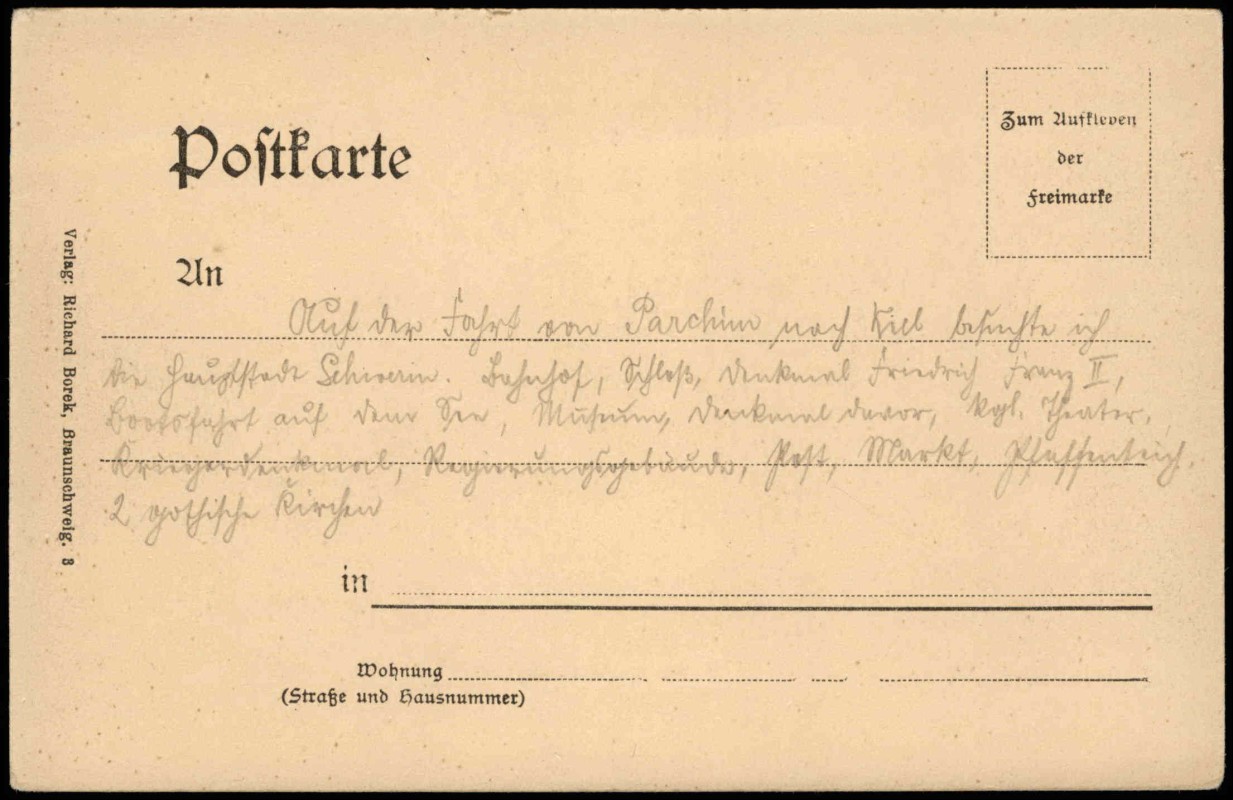 Postkarte
Zum Aufkleben
der
Freimarke
An
Auf der Fahrt von Parchim nach Kiel besuchte ich
die Hauptstadt Schwerin. Bahnhof, Schloß, Denkmal Friedrich Franz II,
Bootsfahrt auf dem See, Museum, Denkmal davor, Kgl. Theater,
Kriegerdenkmal, Regierungsgebäude, Post, Markt, Pfaffenteich,
2 gothische Kirchen
in
Wohnung
(Straße und Hausnummer)
Verlag: Richard Borek, Braunschweig. 3